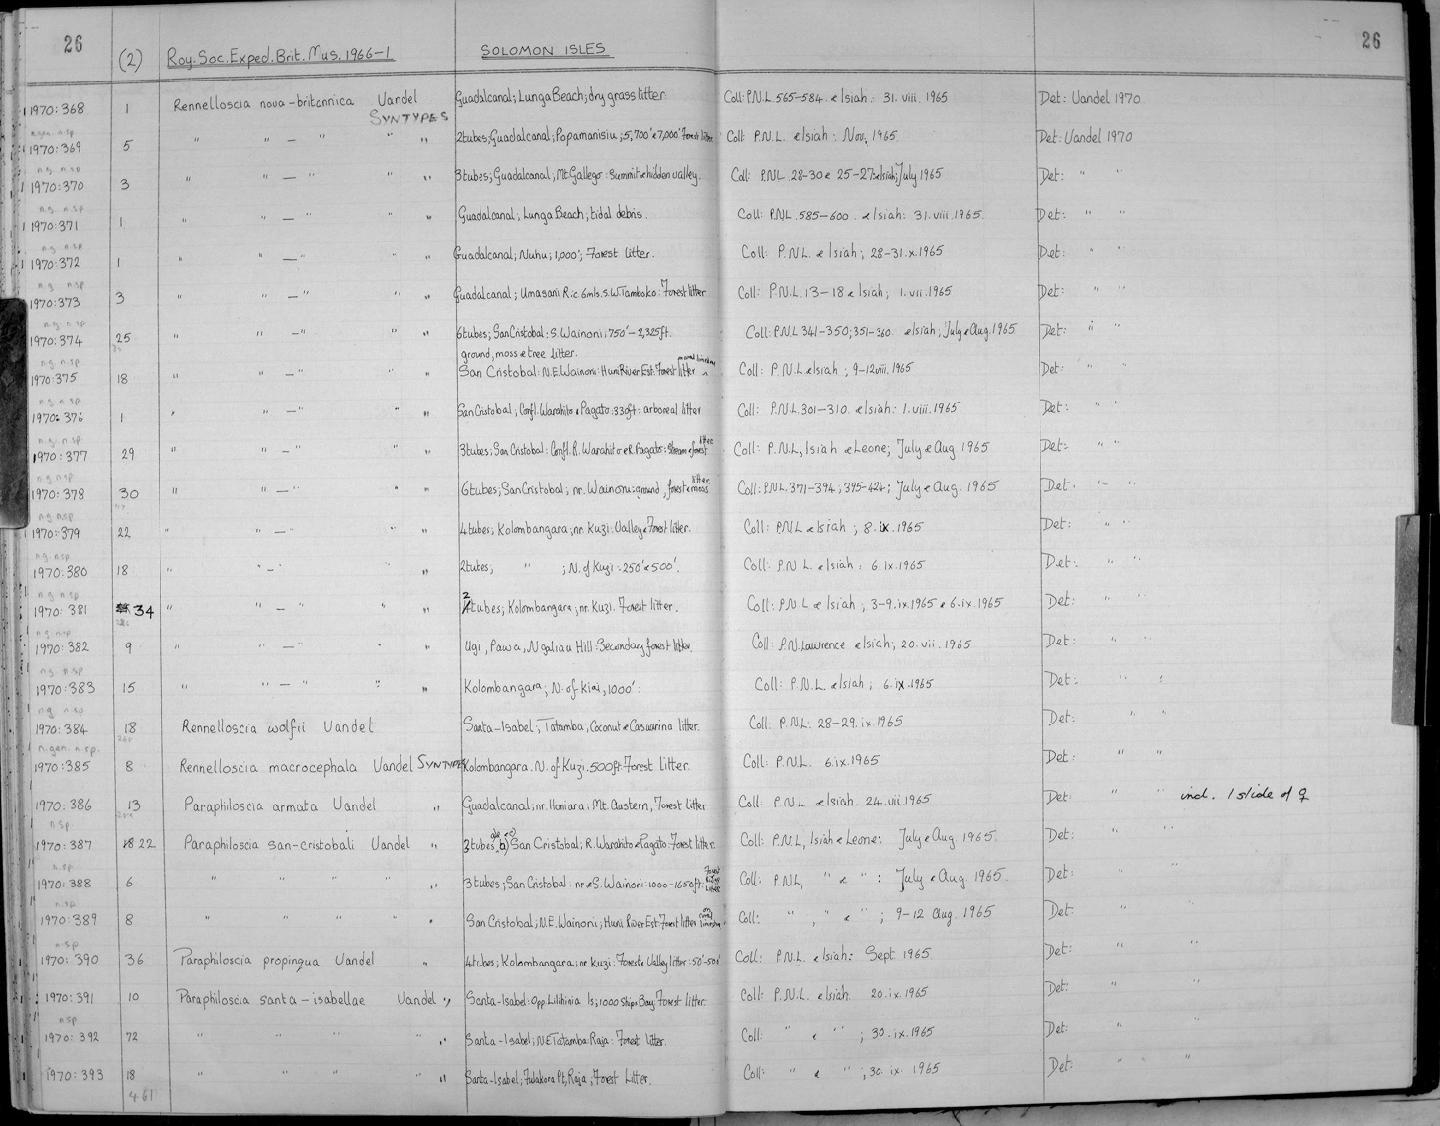 26 (2) Roy. Soc. Exped. Brit. Mus. 1966-1 SOLOMON ISLES 26
1970:368 1 Rennelloscia nova-britannica Vandel Guadalcanal; Lunga Beach; dry grass litter Coll: P.N.L. 565-584 & Isiah: 31. viii. 1965 Det: Vandel 1970
SYNTYPES
n.gen. n.sp
1970:369 5 " " — " " " 2 tubes; Guadalcanal; Popamanisiu; 5,700' & 7,000' Forest litter Coll: P.N.L. & Isiah: Nov, 1965. Det: Vandel 1970
n.g. n.sp
1970:370 3 " " — " " " 3 tubes; Guadalcanal; Mt Gallego: Summit & hidden valley. Coll: P.N.L. 28-30 & 25-27 & Isiah; July 1965 Det: " "
n.g. n.sp
1970:371 1 " " — " " " Guadalcanal; Lunga Beach; tidal debris. Coll: P.N.L. 585-600. & Isiah: 31. viii. 1965. Det: " "
n.g. n.sp
1970:372 1 " " — " " " Guadalcanal; Nuhu; 1,000'; Forest litter. Coll: P.N.L. & Isiah; 28-31.x.1965 Det: " "
n.g. n.sp
1970:373 3 " " — " " " Guadalcanal; Umasani R. c. 6mls. S.W. Tamboko: Forest litter Coll: P.N.L. 13-18 & Isiah; 1. vii. 1965 Det: " "
n.g. n.sp
1970:374 25 " " — " " " 6 tubes; San Cristobal: S. Wainoni; 750'-2,325ft. Coll: P.N.L 341-350; 351-360. & Isiah; July & Aug. 1965 Det: " "
ground, moss & tree litter.
n.g. n.sp
1970:375 18 " " — " " " San Cristobal: N.E. Wainoni: Huni River Est: Forest litter Coll: P.N.L & Isiah; 9-12 viii. 1965 Det: " "
n.g. n.sp
1970:376 1 " " — " " San Cristobal; Confl. Warahito & Pagato: 330ft: arboreal litter Coll: P.N.L. 301-310. & Isiah: 1. viii. 1965 Det: " "
n.g. n.sp
1970:377 29 " " — " " " 3 tubes; San Cristobal: Confl. R. Warahito & R. Pagato: Stream & forest litter Coll: P.N.L, Isiah & Leone; July & Aug 1965 Det: " "
n.g. n.sp
1970:378 30 " " — " " " 6 tubes; San Cristobal; nr. Wainoni: ground, forest & moss litter Coll: P.N.L. 371-394; 395-424; July & Aug. 1965 Det: " "
n.g. n.sp
1970:379 22 " " — " " " 4 tubes; Kolombangara; nr. Kuzi: Valley & Forest litter. Coll: P.N.L & Isiah; 8. ix. 1965 Det: " "
n.g. n.sp.
1970:380 18 " " — " " 2 tubes; " ; N. of Kuzi: 250' & 500'. Coll: P.N.L. & Isiah: 6. ix. 1965 Det: " "
n.g. n.sp
1970:381 34 " " — " " " 2 tubes; Kolombangara; nr. Kuzi. Forest litter. Coll: P.N.L & Isiah; 3-9. ix. 1965 & 6. ix. 1965 Det: " "
n.g. n.sp
1970:382 9 " " — " " Ugi, Pawa, Ngaliau Hill: Secondary forest litter. Coll: P.N. Lawrence & Isiah; 20. vii. 1965 Det: " "
n.g. n.sp
1970:383 15 " " — " " " Kolombangara; N. of Kiai, 1000': Coll: P.N.L. & Isiah; 6. ix. 1965 Det: " "
n.g n.sp
1970:384 18 Rennelloscia wolfii Vandel Santa-Isabel; Tatamba, Coconut & Casuarina litter. Coll: P.N.L: 28-29. ix. 1965 Det: " "
n.gen. n.sp.
1970:385 8 Rennelloscia macrocephala Vandel SYNTYPES Kolombangara. N. of Kuzi. 500ft. Forest litter. Coll: P.N.L. 6. ix. 1965 Det: " "
1970:386 13 Paraphiloscia armata Vandel " Guadalcanal; nr. Honiara; Mt. Austern, Forest litter Coll: P.N.L & Isiah. 24. vii 1965 Det: " " incl. 1 slide of ♀
n.sp.
1970:387 22 Paraphiloscia san-cristobali Vandel " 3 tubes San Cristobal; R. Warahito & Pagato: Forest litter. Coll: P.N.L, Isiah & Leone: July & Aug 1965. Det: " "
n.sp.
1970:388 6 " " " " " 3 tubes; San Cristobal: nr & S. Wainoni: 1000-1650ft: Coll: P.N.L, " & " : July & Aug. 1965. Det: "
n.sp.
1970:389 8 " " " " " San Cristobal; N.E. Wainoni; Huni River Est: Forest litter Coll: " , " & " ; 9-12 Aug. 1965 Det: "
n.sp
1970:390 36 Paraphiloscia propinqua Vandel " 4 tubes; Kolombangara; nr Kuzi: Forest & Valley litter: 50'-500' Coll: P.N.L. & Isiah: Sept. 1965. Det: " "
1970:391 10 Paraphiloscia santa-isabellae Vandel " Santa-Isabel: Opp Lilihinia Is; 1000 Ships Bay: Forest litter. Coll: P.N.L. & Isiah. 20. ix. 1965 Det: " "
n.sp
1970:392 72 " " " " " Santa-Isabel; N.E Tatamba: Raja: Forest litter. Coll: " & " ; 30. ix. 1965 Det: " "
1970:393 18 " " " " " Santa-Isabel; Fulakora Pt, Raja; Forest Litter. Coll: " & " ; 30. ix. 1965 Det: " "
461